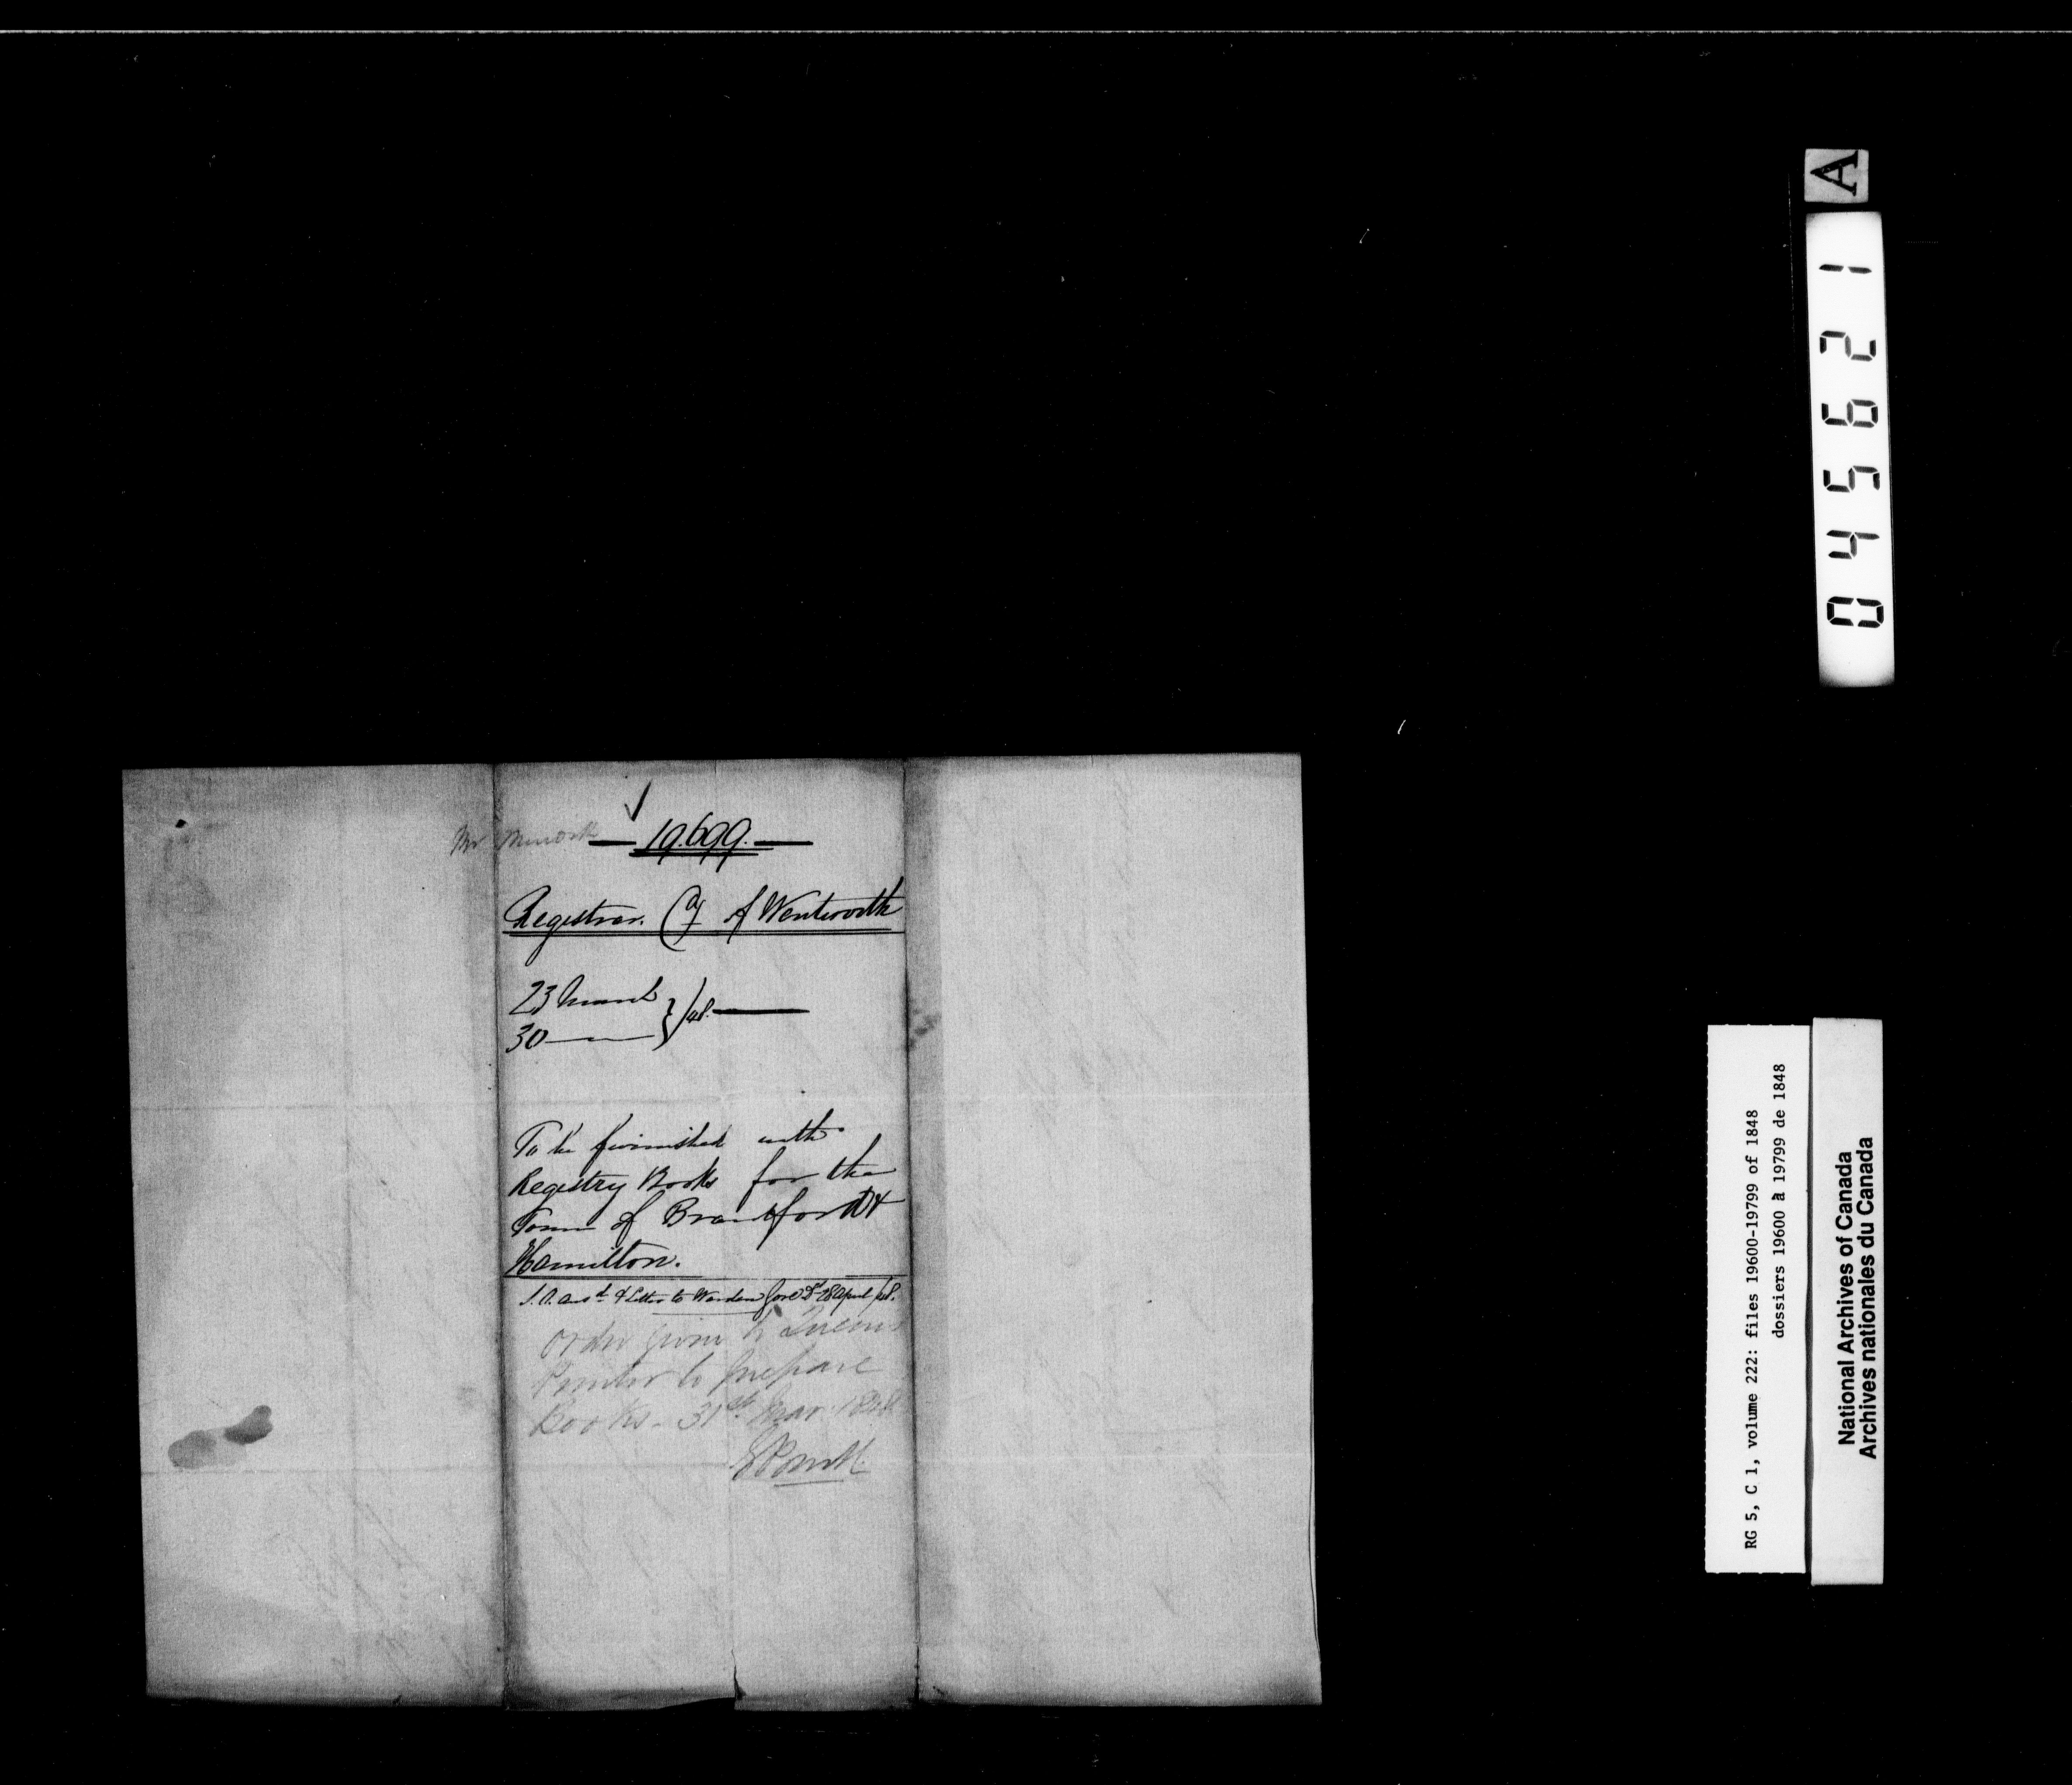 Mr
19.699.
Registrar. Cy of Wentworth
23 March
30 — } /48.
To be furnished with
Registry Books for the
Town of Brantford &
Hamilton.
Ansd & Letter to Warden Gore Dt 28 April /48.
Order given to Queens
Printer to prepare
Books - 31st Mar. 1848
A
045621
RG 5, C 1, volume 222: files 19600-19799 of 1848
dossiers 19600 à 19799 de 1848
National Archives of Canada
Archives nationales du Canada